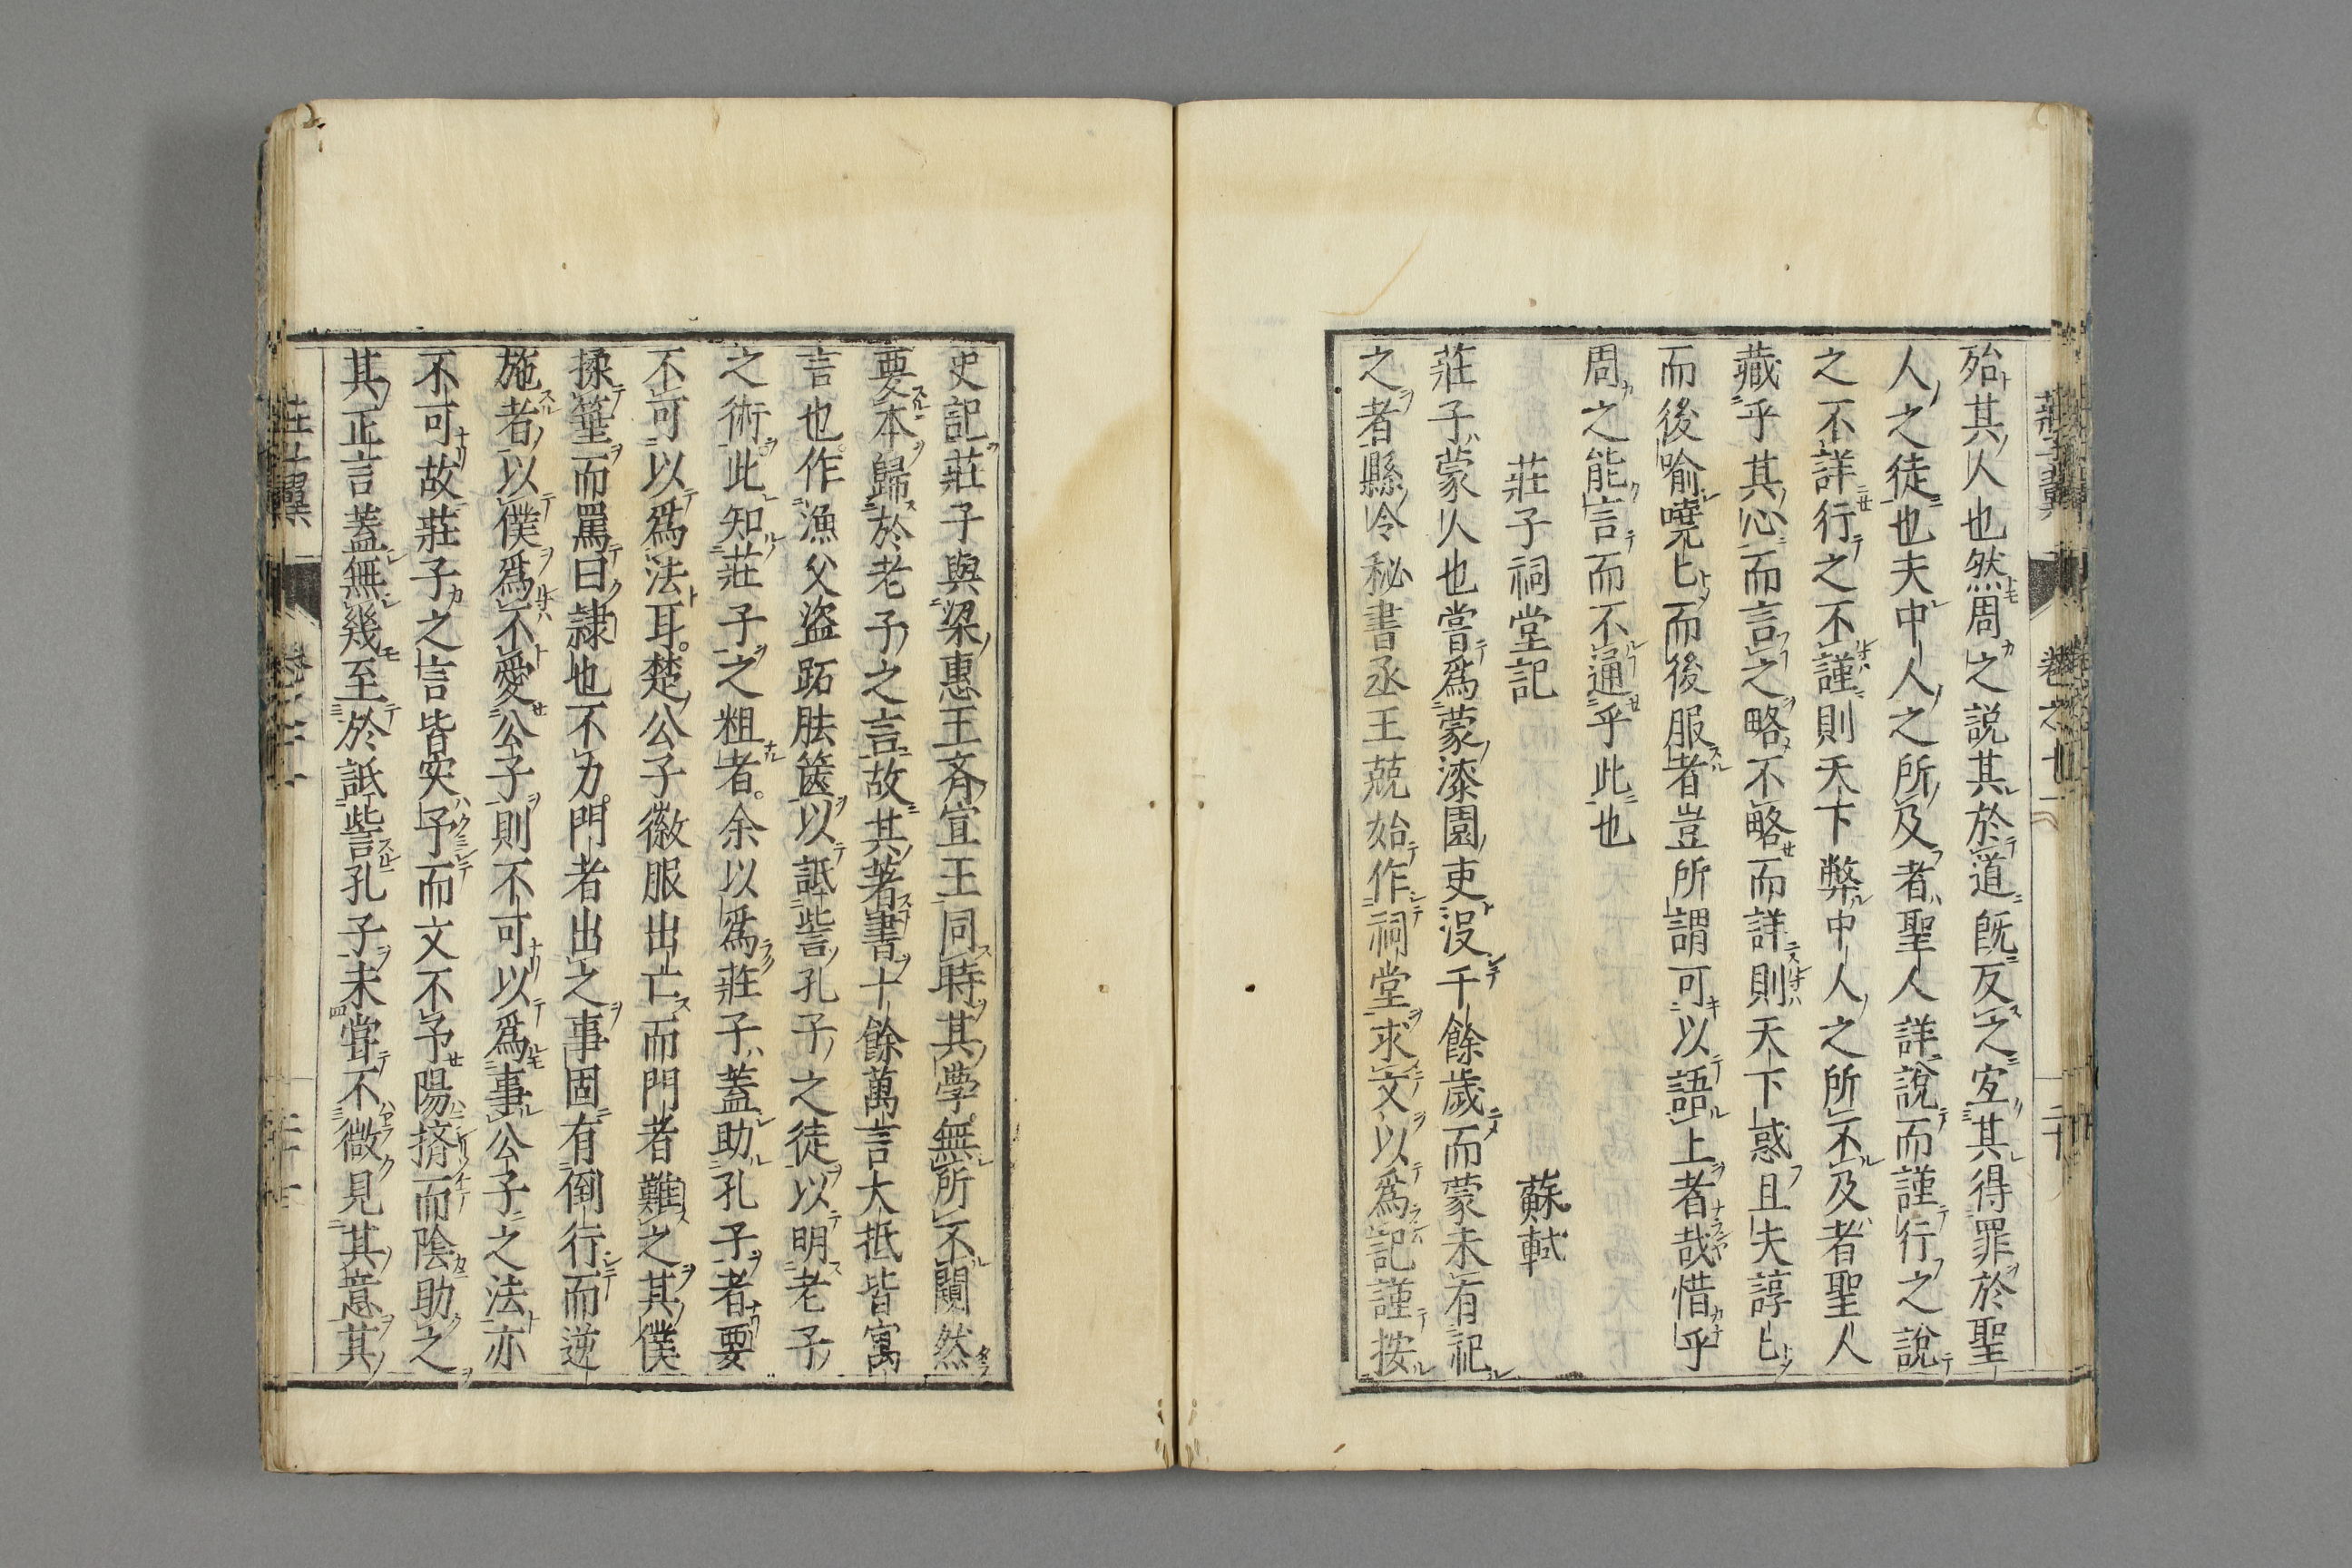 殆其人也然周之説其於道既反之宐其得罪於聖
人之徒也夫中人之所及者聖人詳說而謹行之說
之不詳行之不謹則天下弊中人之所不及者聖人
藏乎其心而言之略不略而詳則天下惑且夫諄〻
而後喻嘵〻而後服者豈所謂可以語上者哉惜乎
周之能言而不通乎此也
莊子祠堂記
蘇軾
莊子蒙人也嘗爲蒙漆園吏没千餘歲而蒙未有祀
之者縣令秘書丞王兢始作祠堂求文以爲記謹按
史記莊子與梁惠王斉宣王同時其學無所不闚然
要本歸於老子之言故其著書十餘萬言大抵皆寓
言也作漁父盗跖胠篋以詆訾孔子之徒以明老子
之術此知莊子之粗者余以爲莊子蓋助孔子者要
不可以爲法耳楚公子微服出亡而門者難之其僕
揉箠而罵曰隷也不力門者出之事固有倒行而逆
施者以僕爲不愛公子則不可以爲事公子之法亦
不可故莊子之言皆実予而文不予陽擠而陰助之
其正言蓋無幾至於詆訾孔子未甞不微見其意其
莊子翼
卷之十一
二十